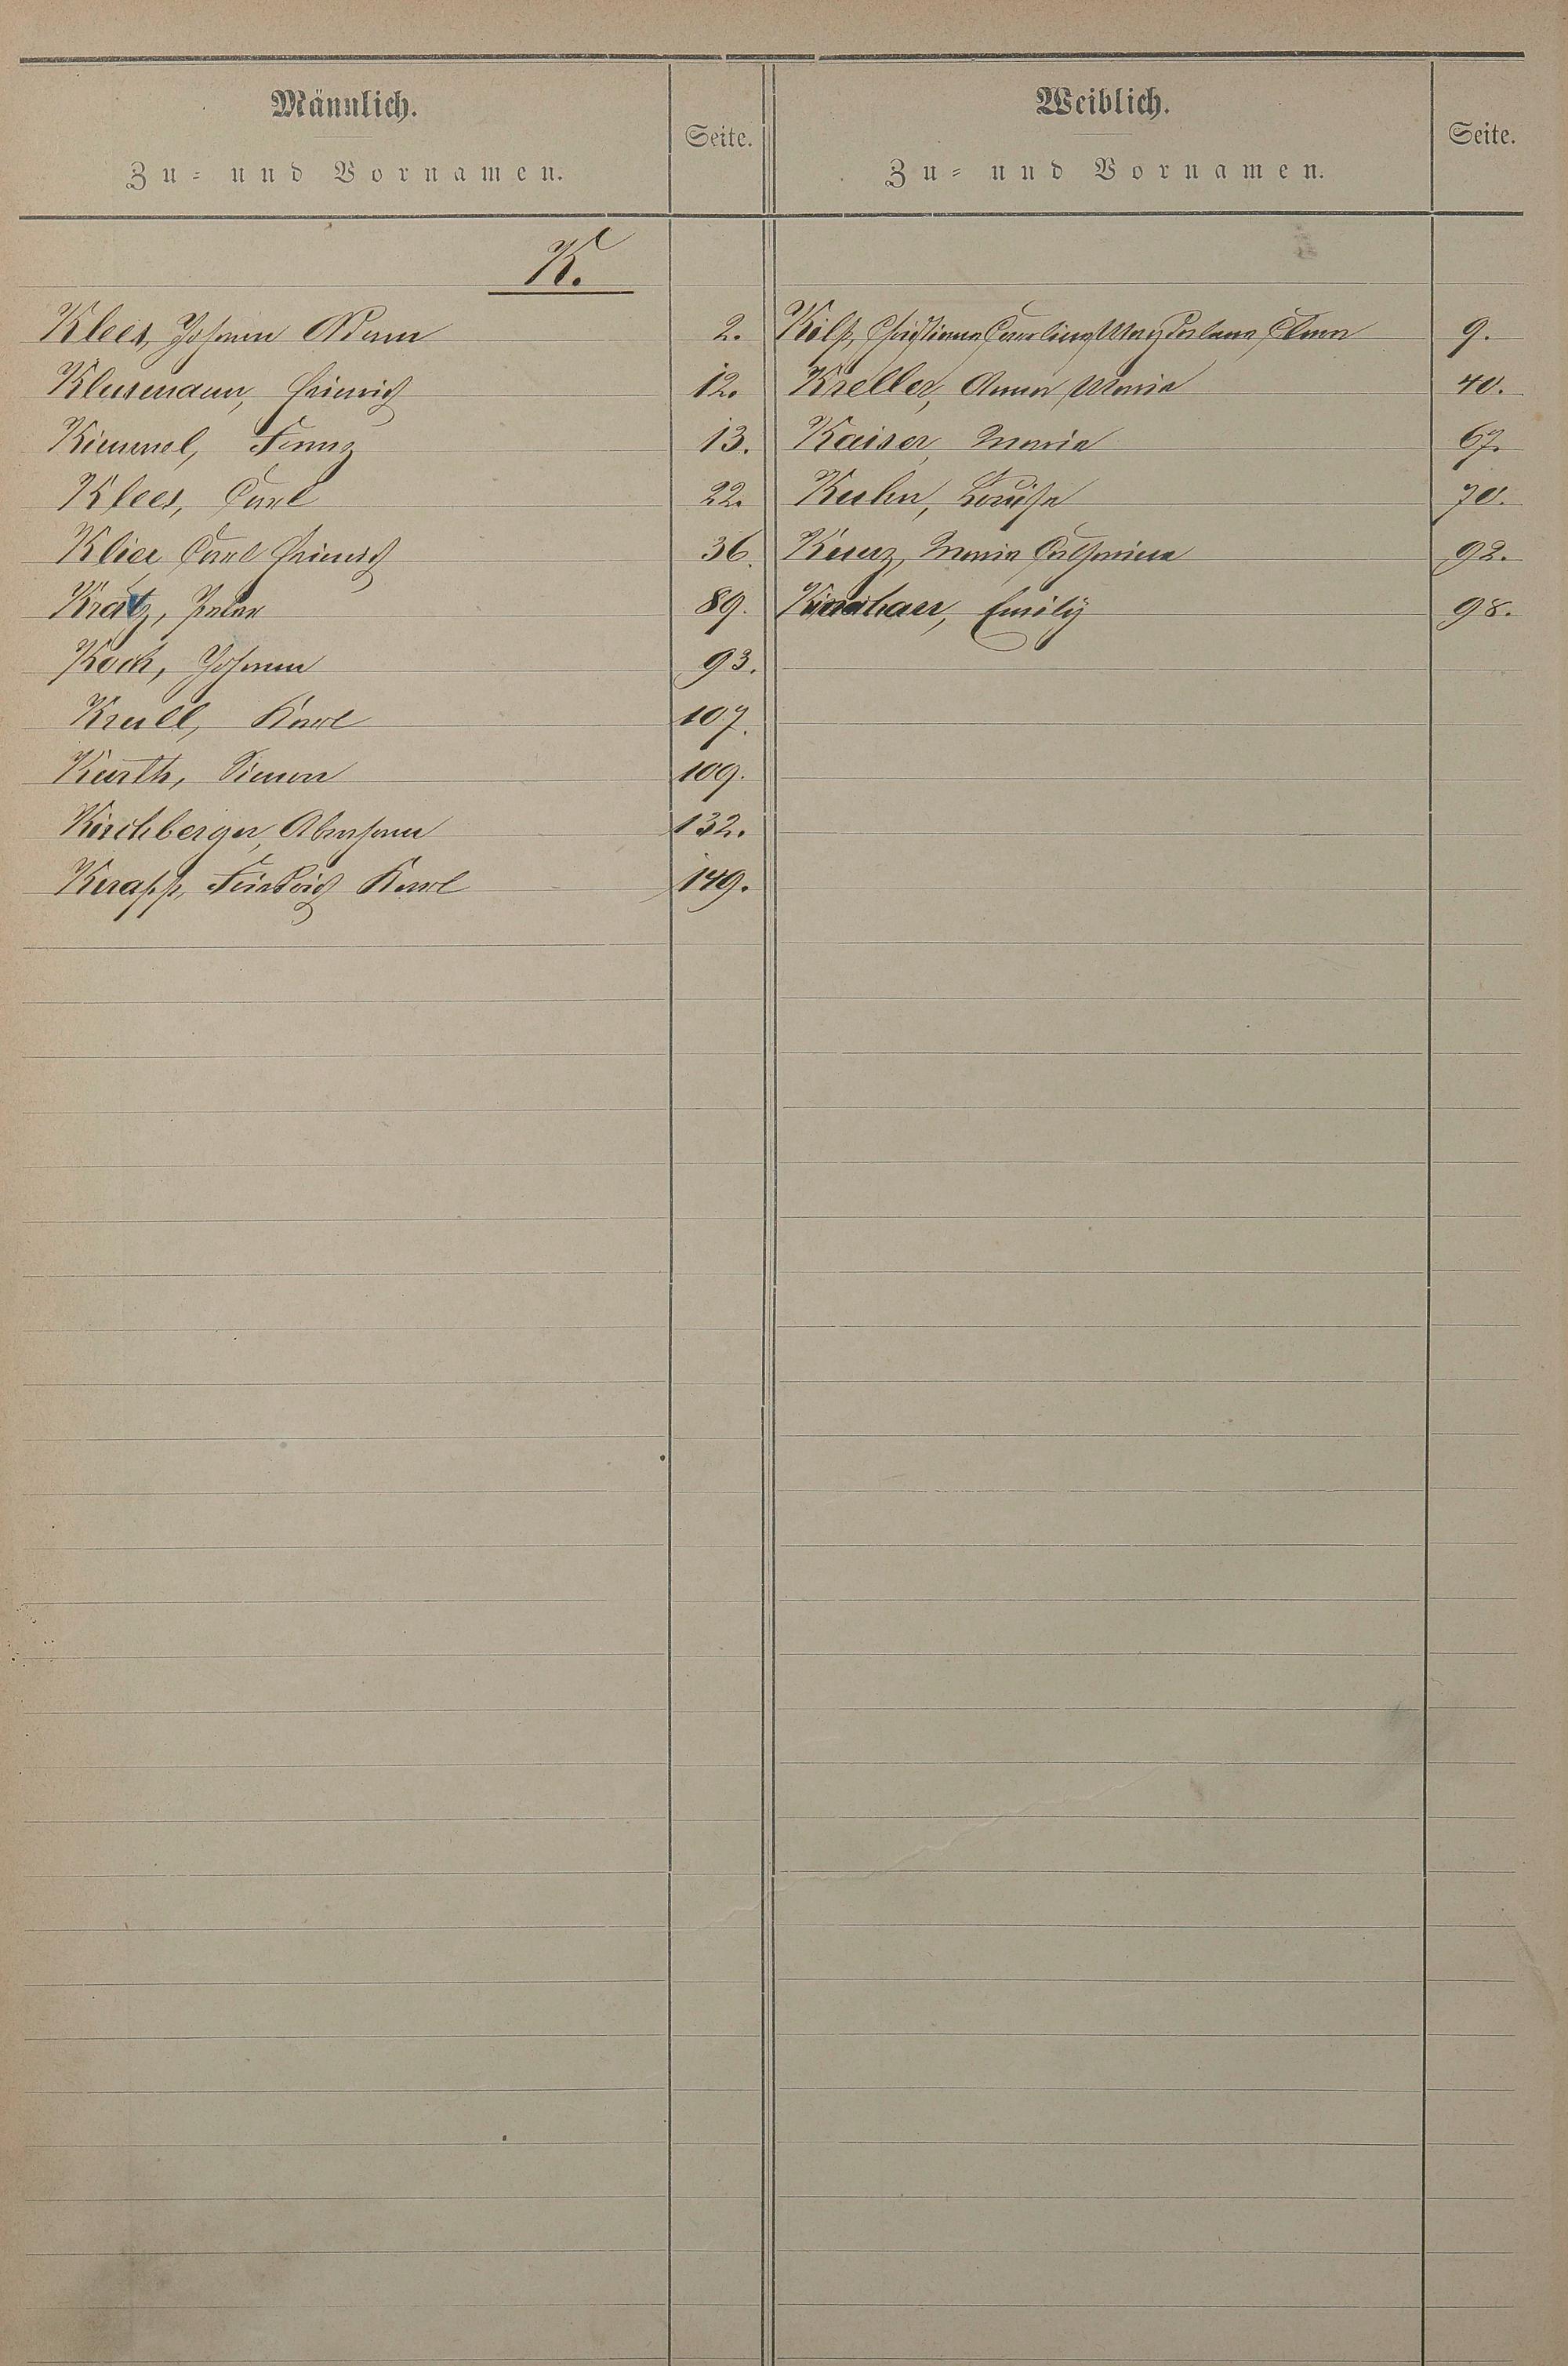 Männlich.
Zu- und Vornamen.
Seite.
Weiblich.
Zu- und Vornamen.
Seite.
K.
Klees, Johann Adam 2.
Klusmann, Heinrich 12.
Kimmel, Franz 13.
Klees, Carl 22.
Klier Carl Heinrich 36.
Kratz, Peter 89.
Koch, Johann 93.
Krull, Karl 107.
Kurth, Simon 109.
Kirchberger, Abraham 132.
Knapp, Friedrich Karl 149.
Kilp, Christiane Caroline Magdalena Clara 9.
Kreller, Anna Maria 40.
Kaiser, Maria 67.
Kuhn, Louise 70.
Kunz, Maria Catharina 92.
Emily 98.